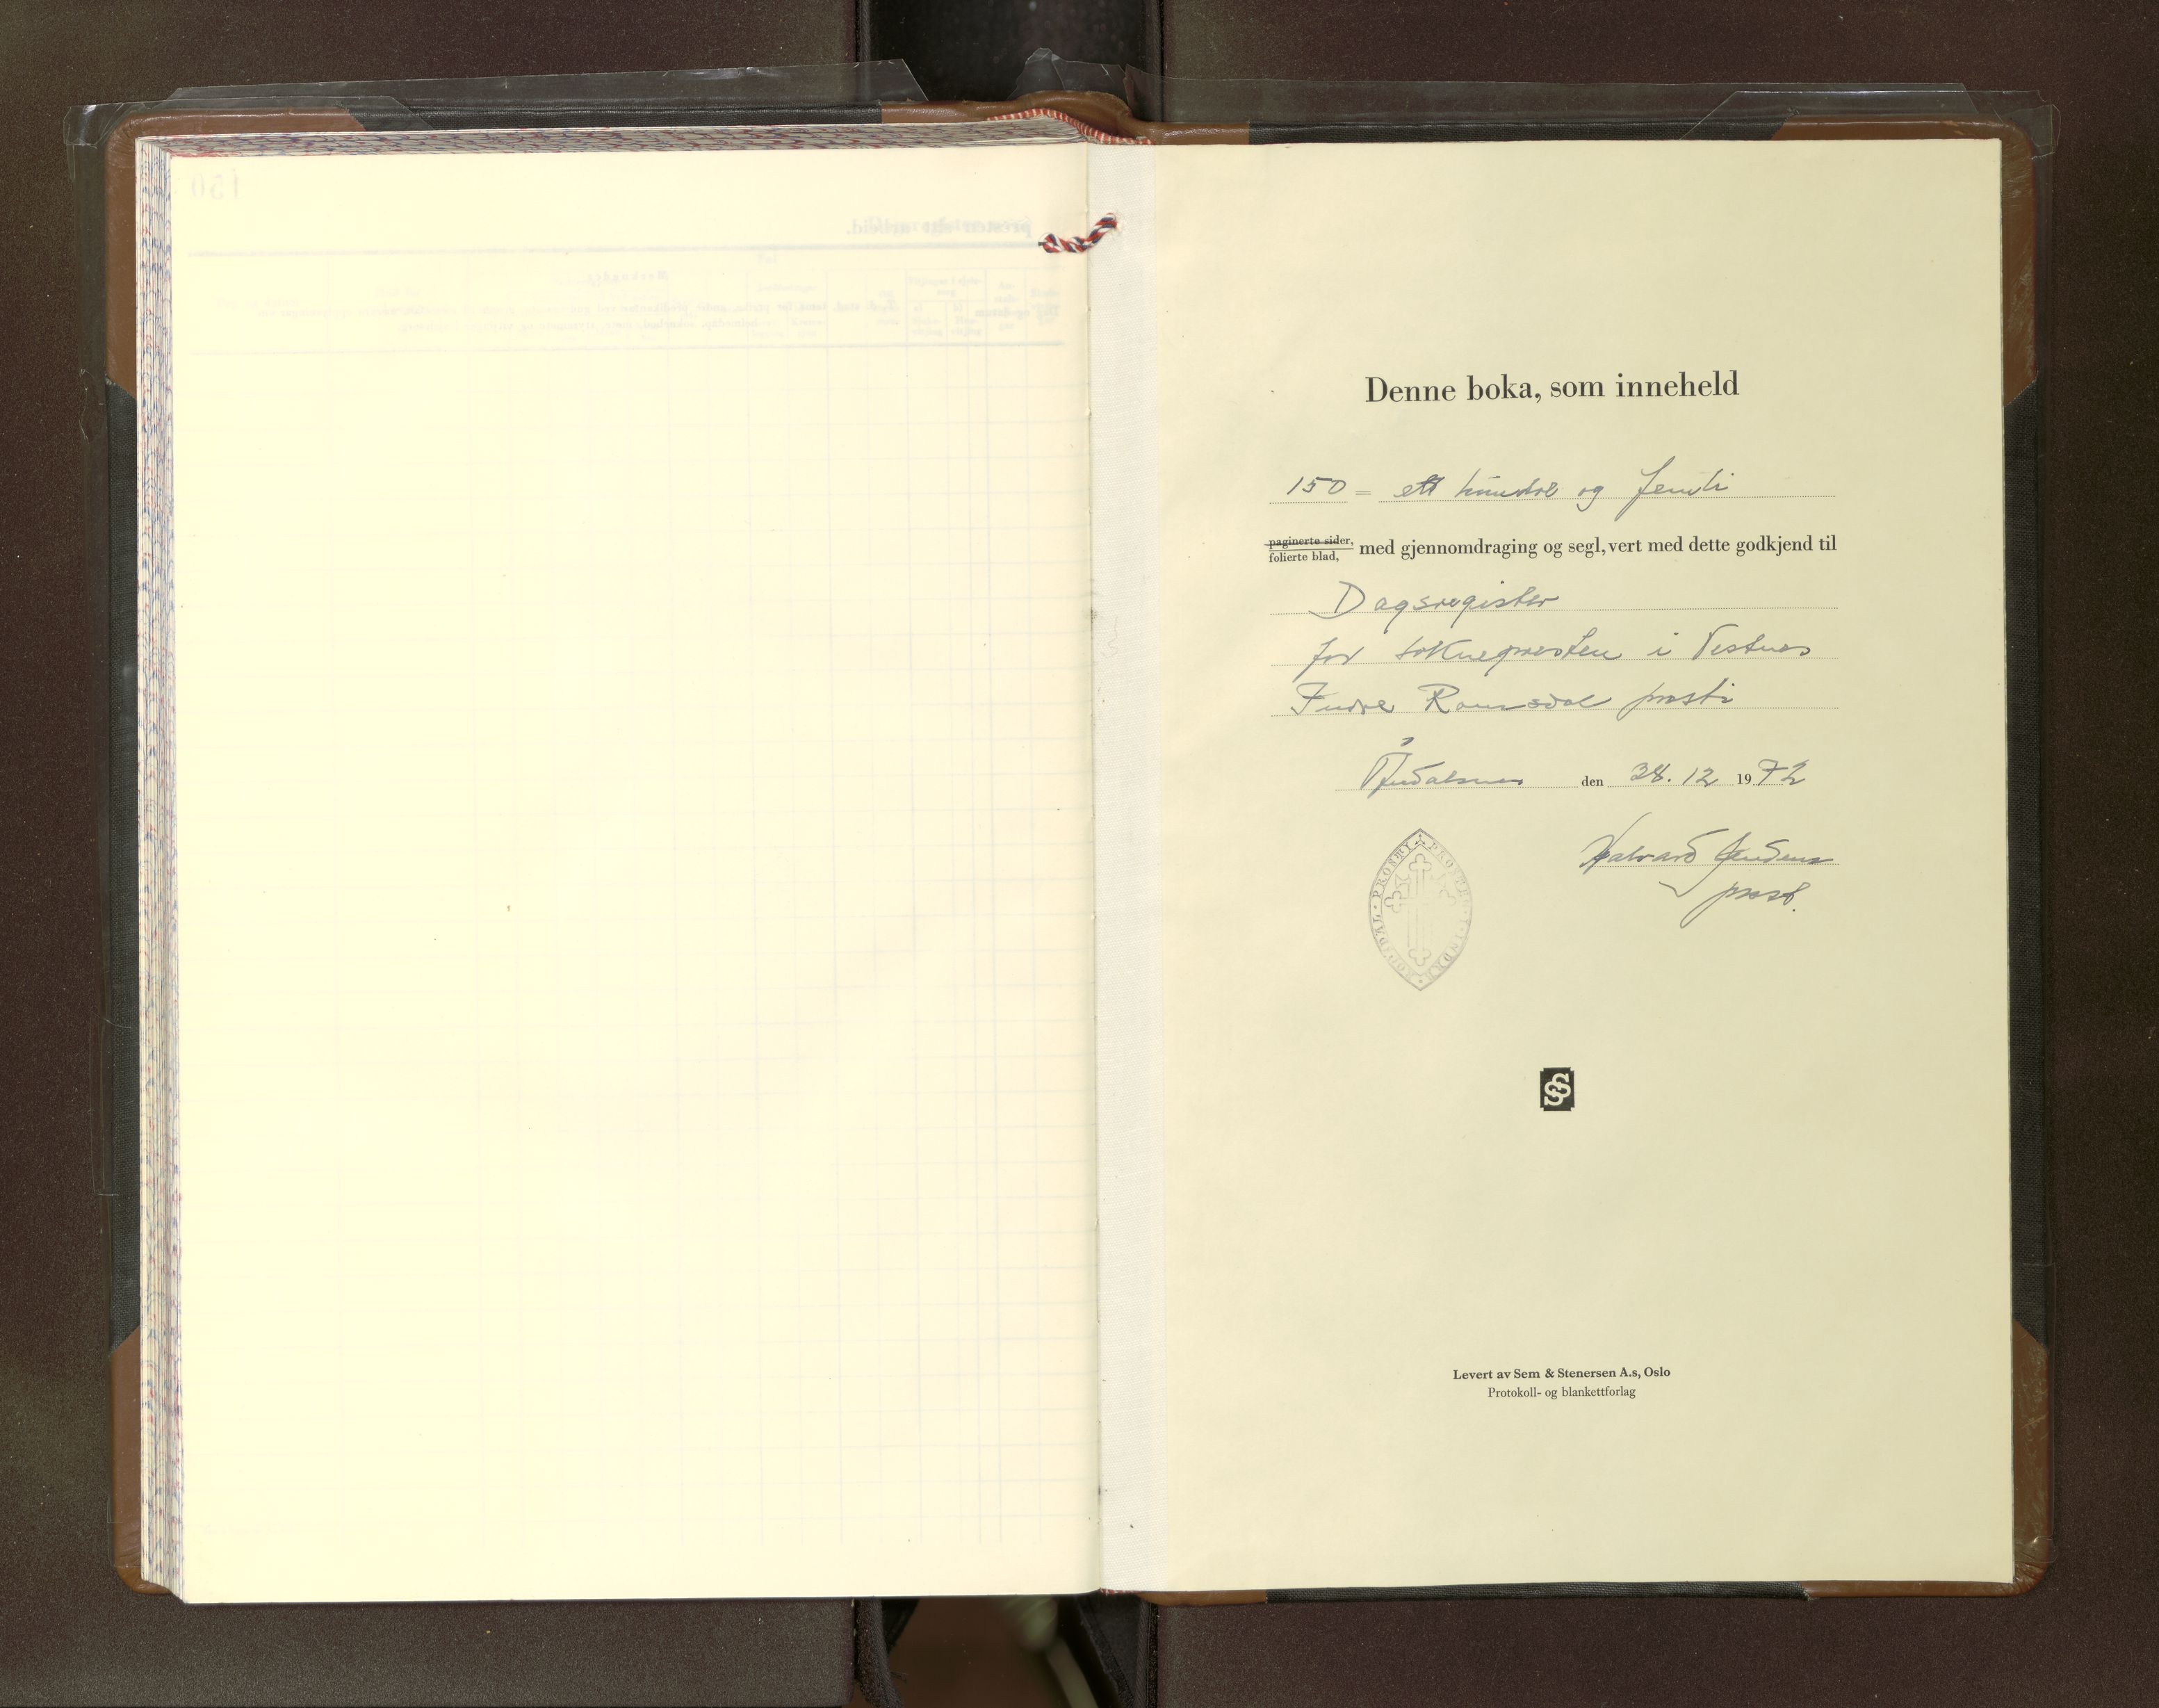 Denne boka, som inneheld
150 = ett hundre og femti
paginerte sider,
folierte blad, med gjennomdraging og segl, vert med dette godkjend til
Dagsregister
for soknepresten i Vestnes
Indre Romsdal prosti
Åndalsnes den 28. 12 1972
prost.
PROSTEN I INDRE ROMSDAL PROSTI
SS
Levert av Sem & Stenersen A.s, Oslo
Protokoll- og blankettforlag